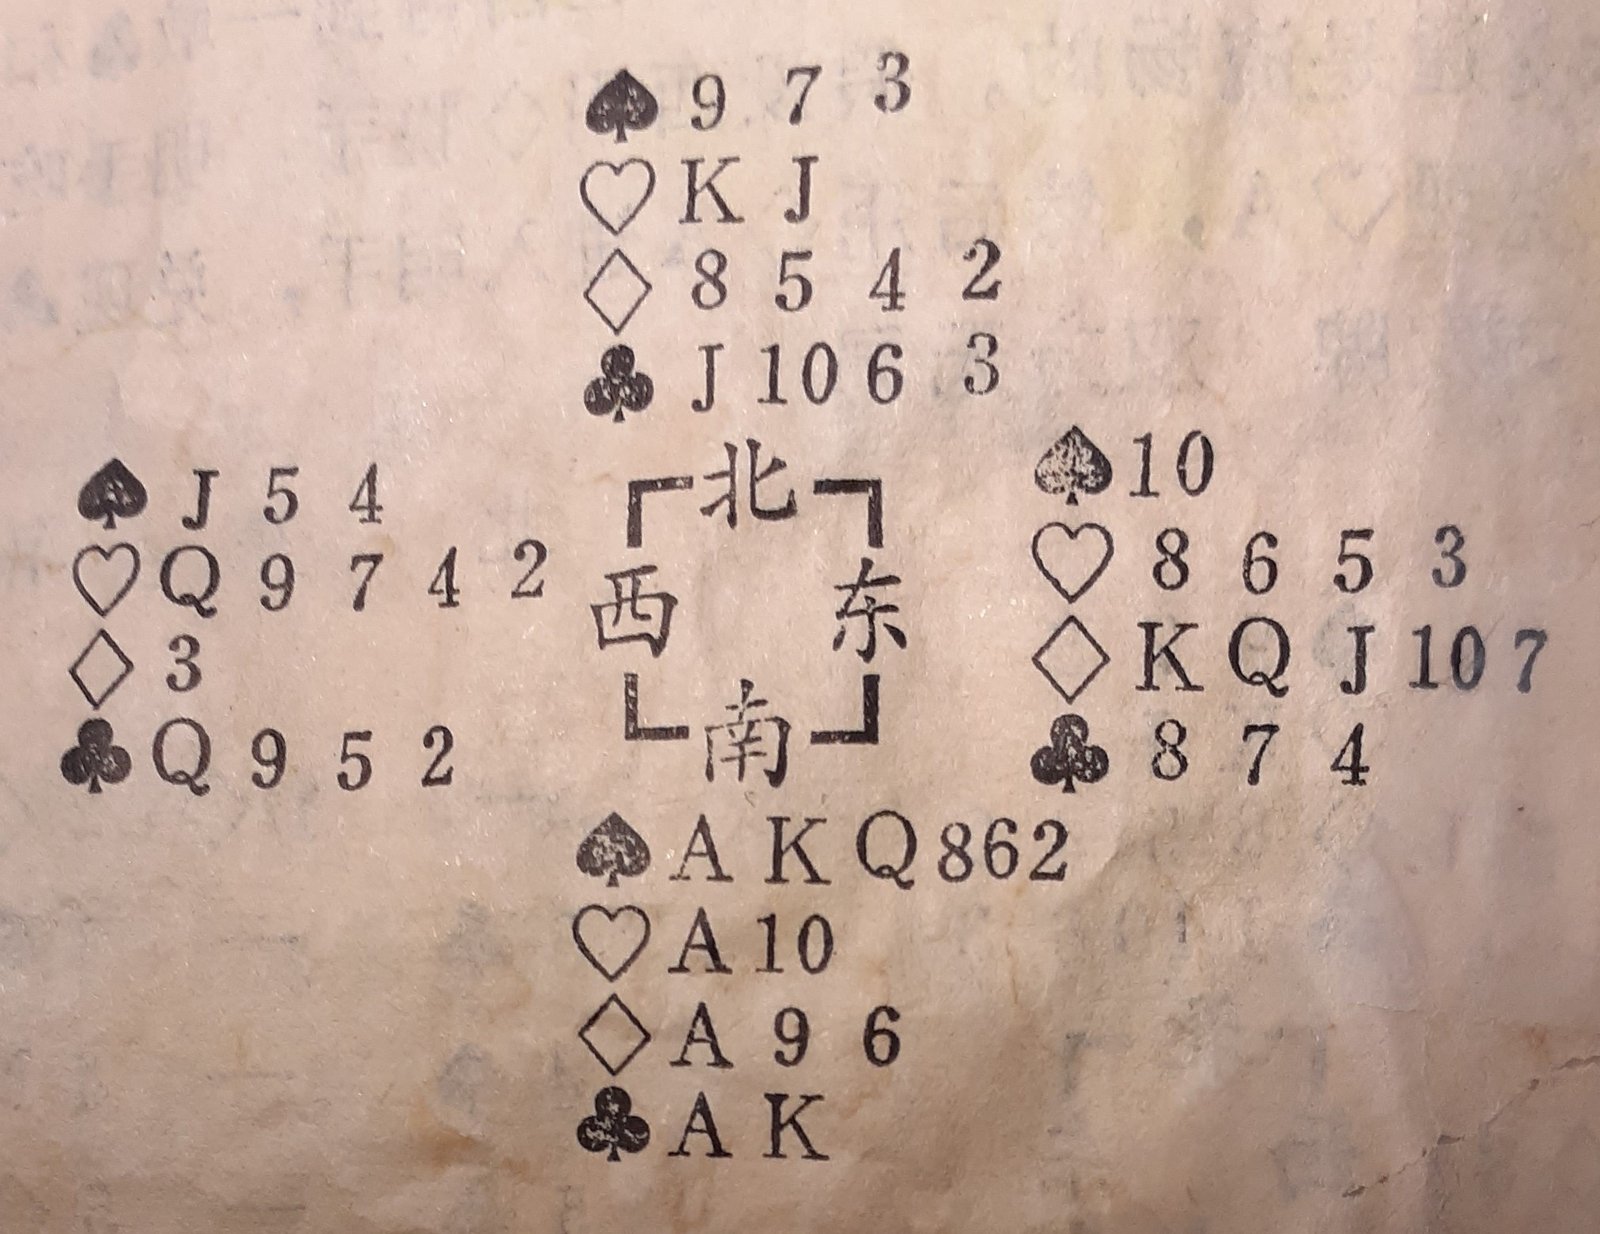 ♠ 9 7 3
♡ K J
♢ 8 5 4 2
♣ J 10 6 3
♠ J 5 4
♡ Q 9 7 4 2
♢ 3
♣ Q 9 5 2
北
西 东
南
♠ 10
♡ 8 6 5 3
♢ K Q J 10 7
♣ 8 7 4
♠ A K Q 8 6 2
♡ A 10
♢ A 9 6
♣ A K